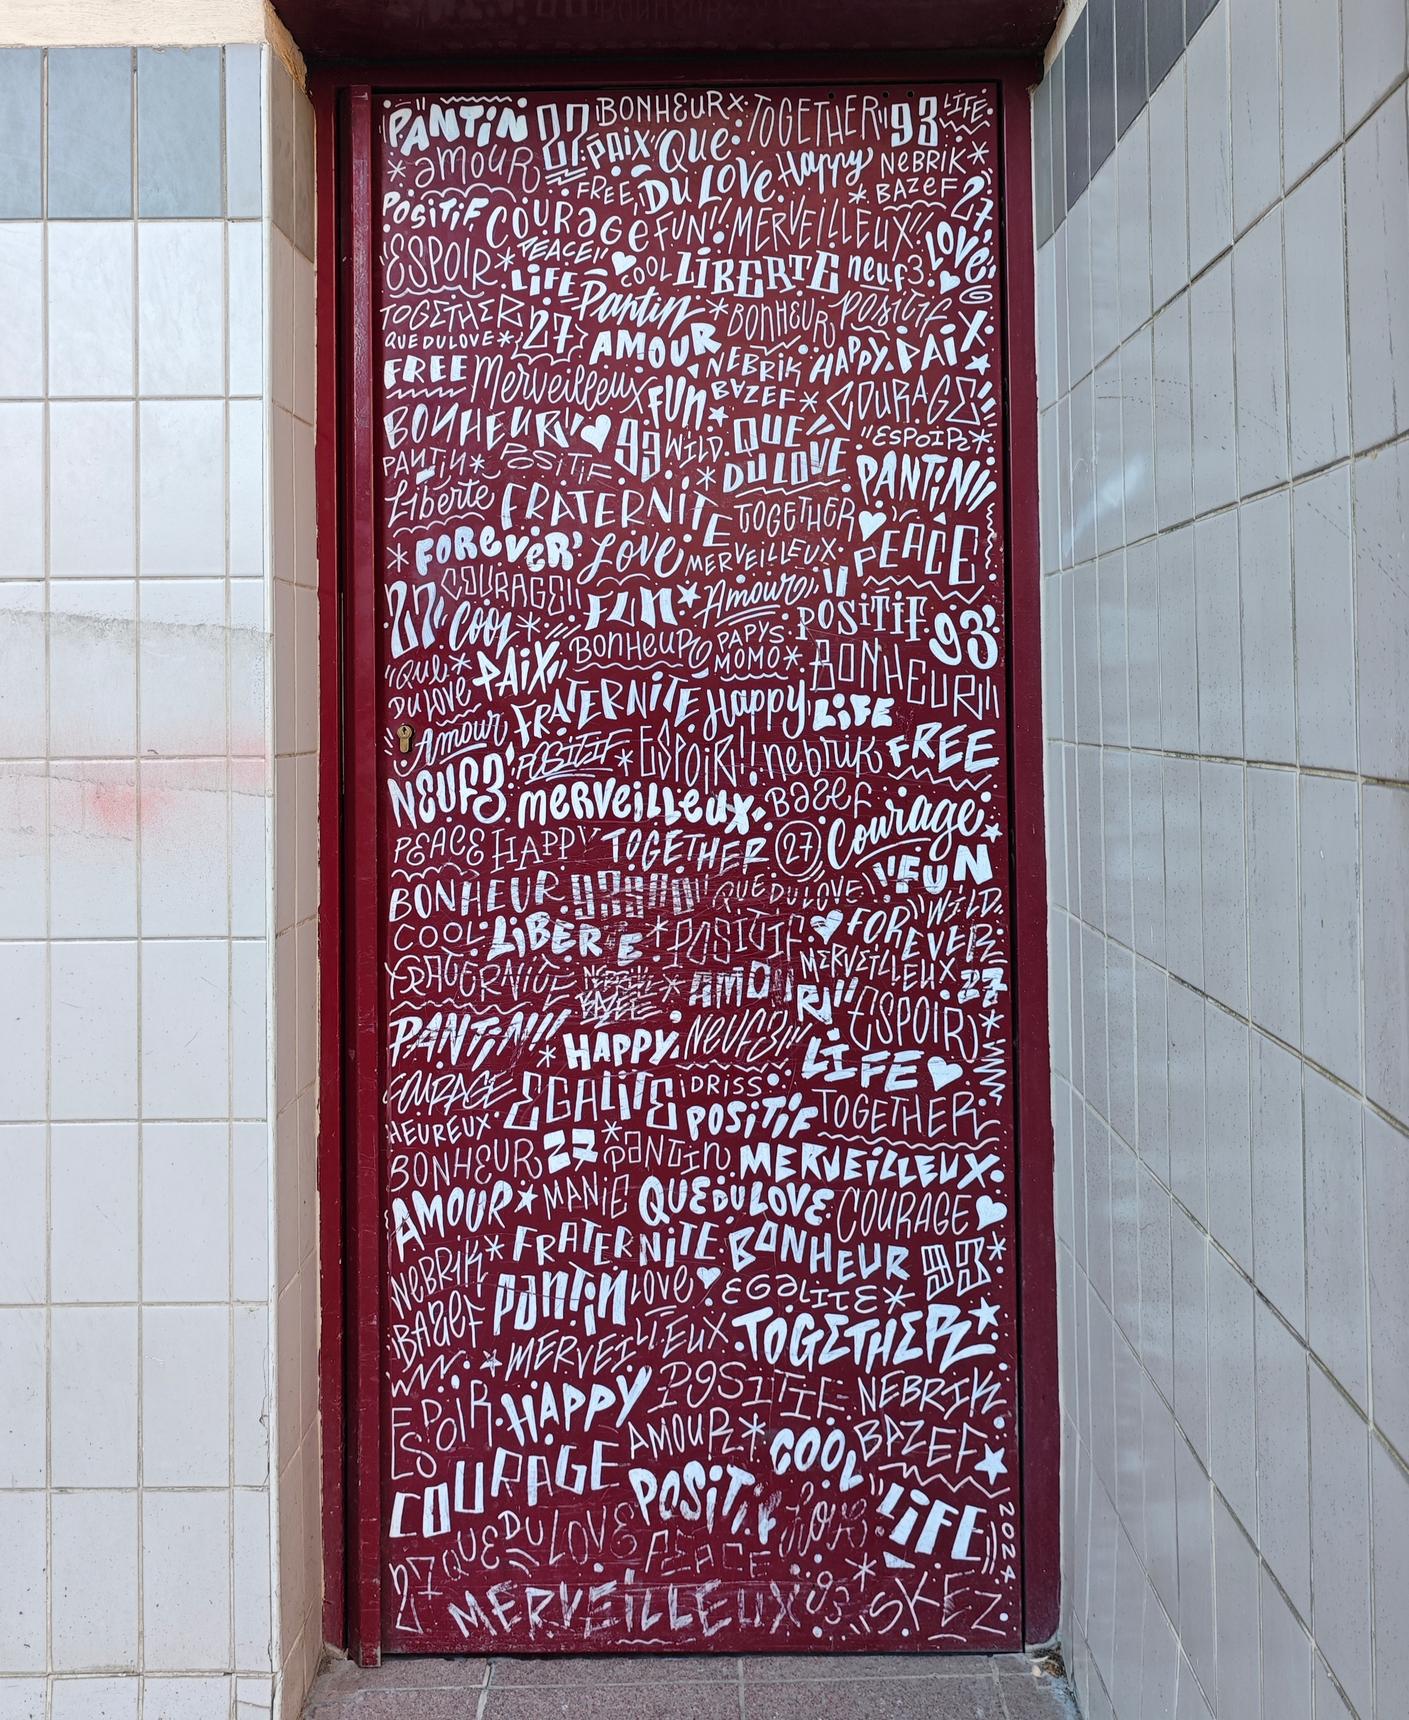 "PANTIN 27 BONHEUR TOGETHER "93 LIFE
AMOUR PAIX QUE Happy NEBRIK
FREE DU LOVE BAZEF 27
POSITIF COURAGE FUN!! MERVEILLEUX" LOVE
"ESPOIR PEACE!! COOL LIBERTE neuf3
LIFE
TOGETHER 27 Pantin BONHEUR POSITIF
QUE DU LOVE AMOUR NEBRIK HAPPY PAIX
FREE Merveilleux FUN BAZEF COURAGE
BONHEUR" 93 WILD QUE DU LOVE "ESPOIR
PANTIN POSITIF PANTIN!!
Liberte FRATERNITE TOGETHER
FOREVER' Love MERVEILLEUX PEACE
27" COURAGE!! FUN Amour POSITIF 93'
Cool BONHEUR PAPYS MOMO BONHEUR!!
"QUE DU LOVE PAIX
FRATERNITE Happy LIFE
Amour POSITIF ESPOIR!! nebrik FREE
NEUF3' MERVEILLEUX BAZEF Courage
PEACE HAPPY TOGETHER 27 "FUN
BONHEUR QUE DU LOVE "WILD
COOL LIBERTE POSITIF FOREVER
FRATERNITE NEBRIK BAZEF AMOUR MERVEILLEUX 27
"ESPOIR
PANTIN!! HAPPY NEUF3!!! LIFE
COURAGE EGALITE IDRISS TOGETHER
HEUREUX POSITIF
BONHEUR 27 PANTIN MERVEILLEUX
AMOUR MANIE QUE DU LOVE COURAGE
NEBRIK FRATERNITE BONHEUR 93
BAZEF PANTIN LOVE EGALITE
MERVEILLEUX TOGETHER
ESPOIR HAPPY POSITIF NEBRIK
AMOUR COOL BAZEF
COURAGE POSITIF Love "LIFE!!
27 QUE DU LOVE PEACE 2024
MERVEILLEUX 93 SYEZ